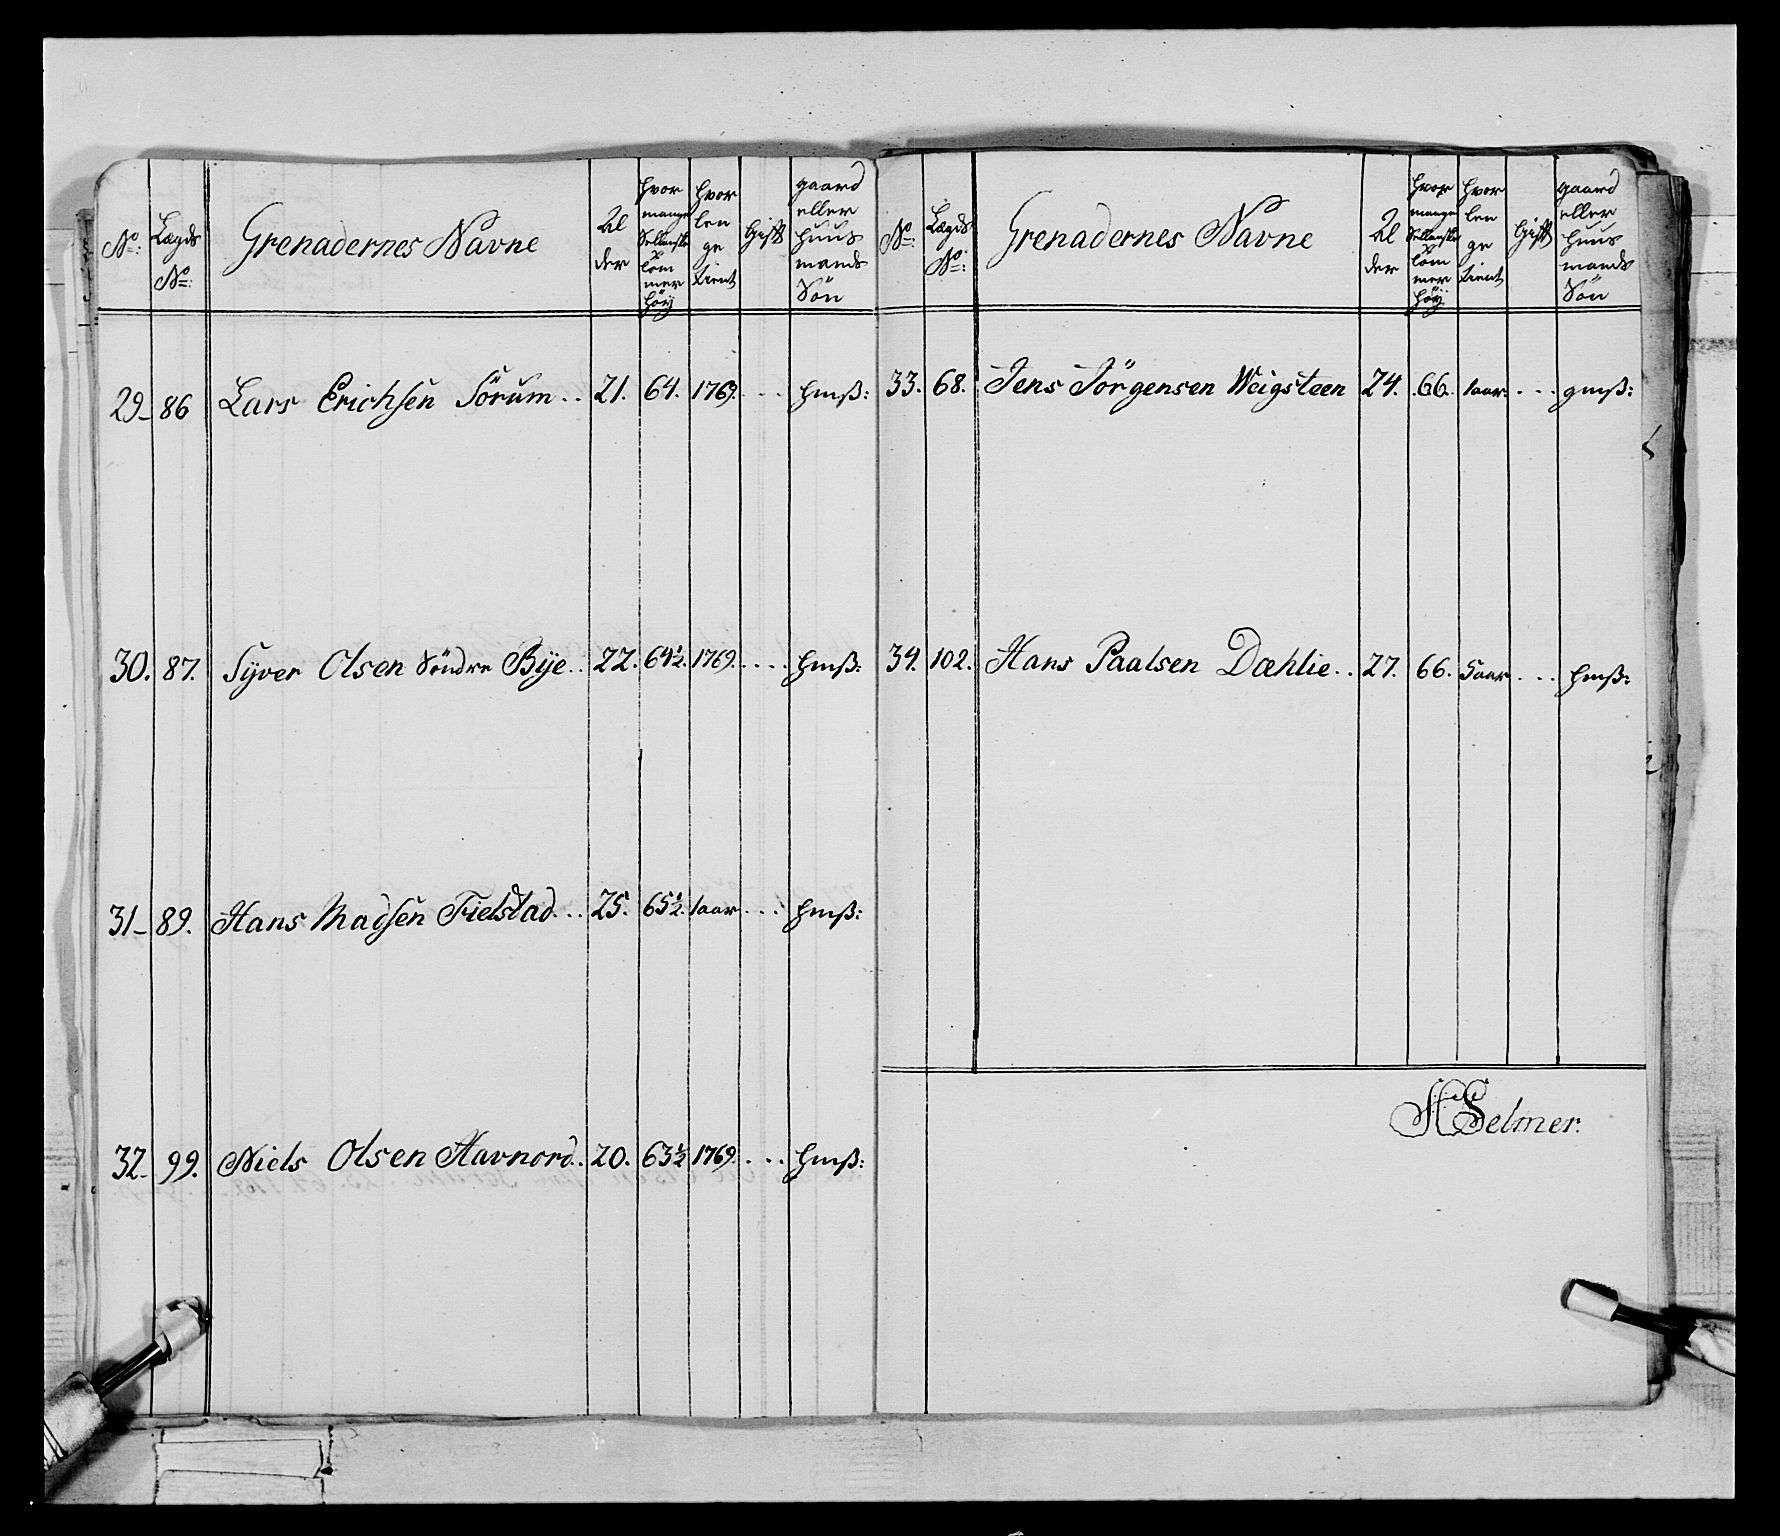 No:
Lægds
No:
Grenadernes Navne
Al
der
hvor
mange
Sellanske
tom
mer
höÿ
hvor
len
ge
tient
Gift
gaard
eller
huus
mands
Sön
29_ 86 Lars Erichsen Sörum.. 21. 64. 1769. ... hmß:
30. 87. Syver Olsen Söndre Bÿe.. 22. 64½. 1769. ... hmß:
31_ 89. Hans Madsen Fielstad... 25. 65½. 1aar ... hmß:
32_ 99. Niels Olsen Havnord.. 20. 63½ 1769. ... hmß:
No:
Lægds
No:
Grenadernes Navne
Al
der
hvor
mange
Sellanske
tom
mer
höÿ
hvor
len
ge
tient
Gift
gaard
eller
huus
mands
Sön
33. 68. Jens Jörgensen Weigsteen 24. 66. 1aar. ... gmß:
34. 102. Hans Paalsen Dæhlie.. 27. 66. 5aar ... hmß:
HSelmer.